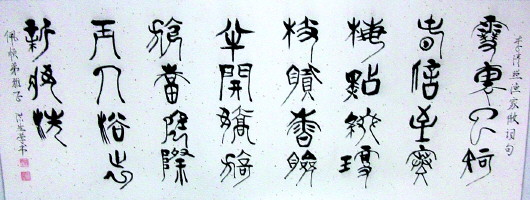 李清照渔家傲詞句
雪裏已知
春信至寒
梅點綴瓊
枝膩香臉
半開嬌旖
旎當庭際
玉人浴出
新妝洗